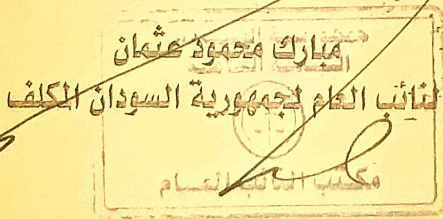 مبارك محمود عثمان
لنائب العام لجمهورية السودان المكلف
مكتب النائب العام